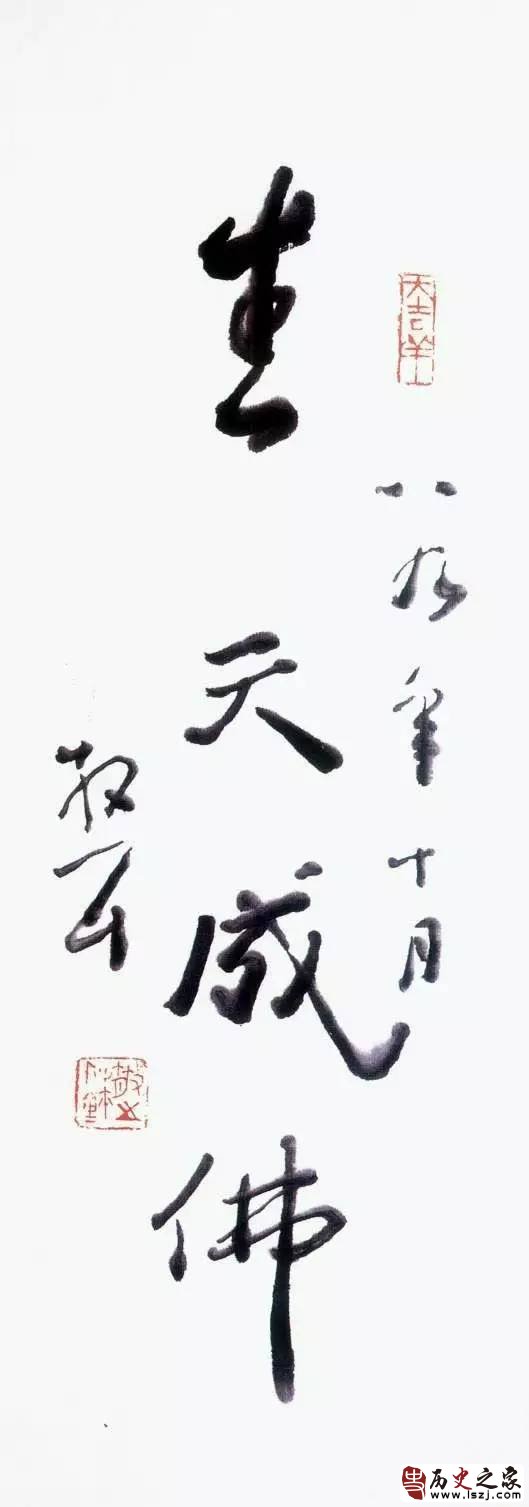 八九年十月
生天成佛
散耳
历史之家
www.lszj.com